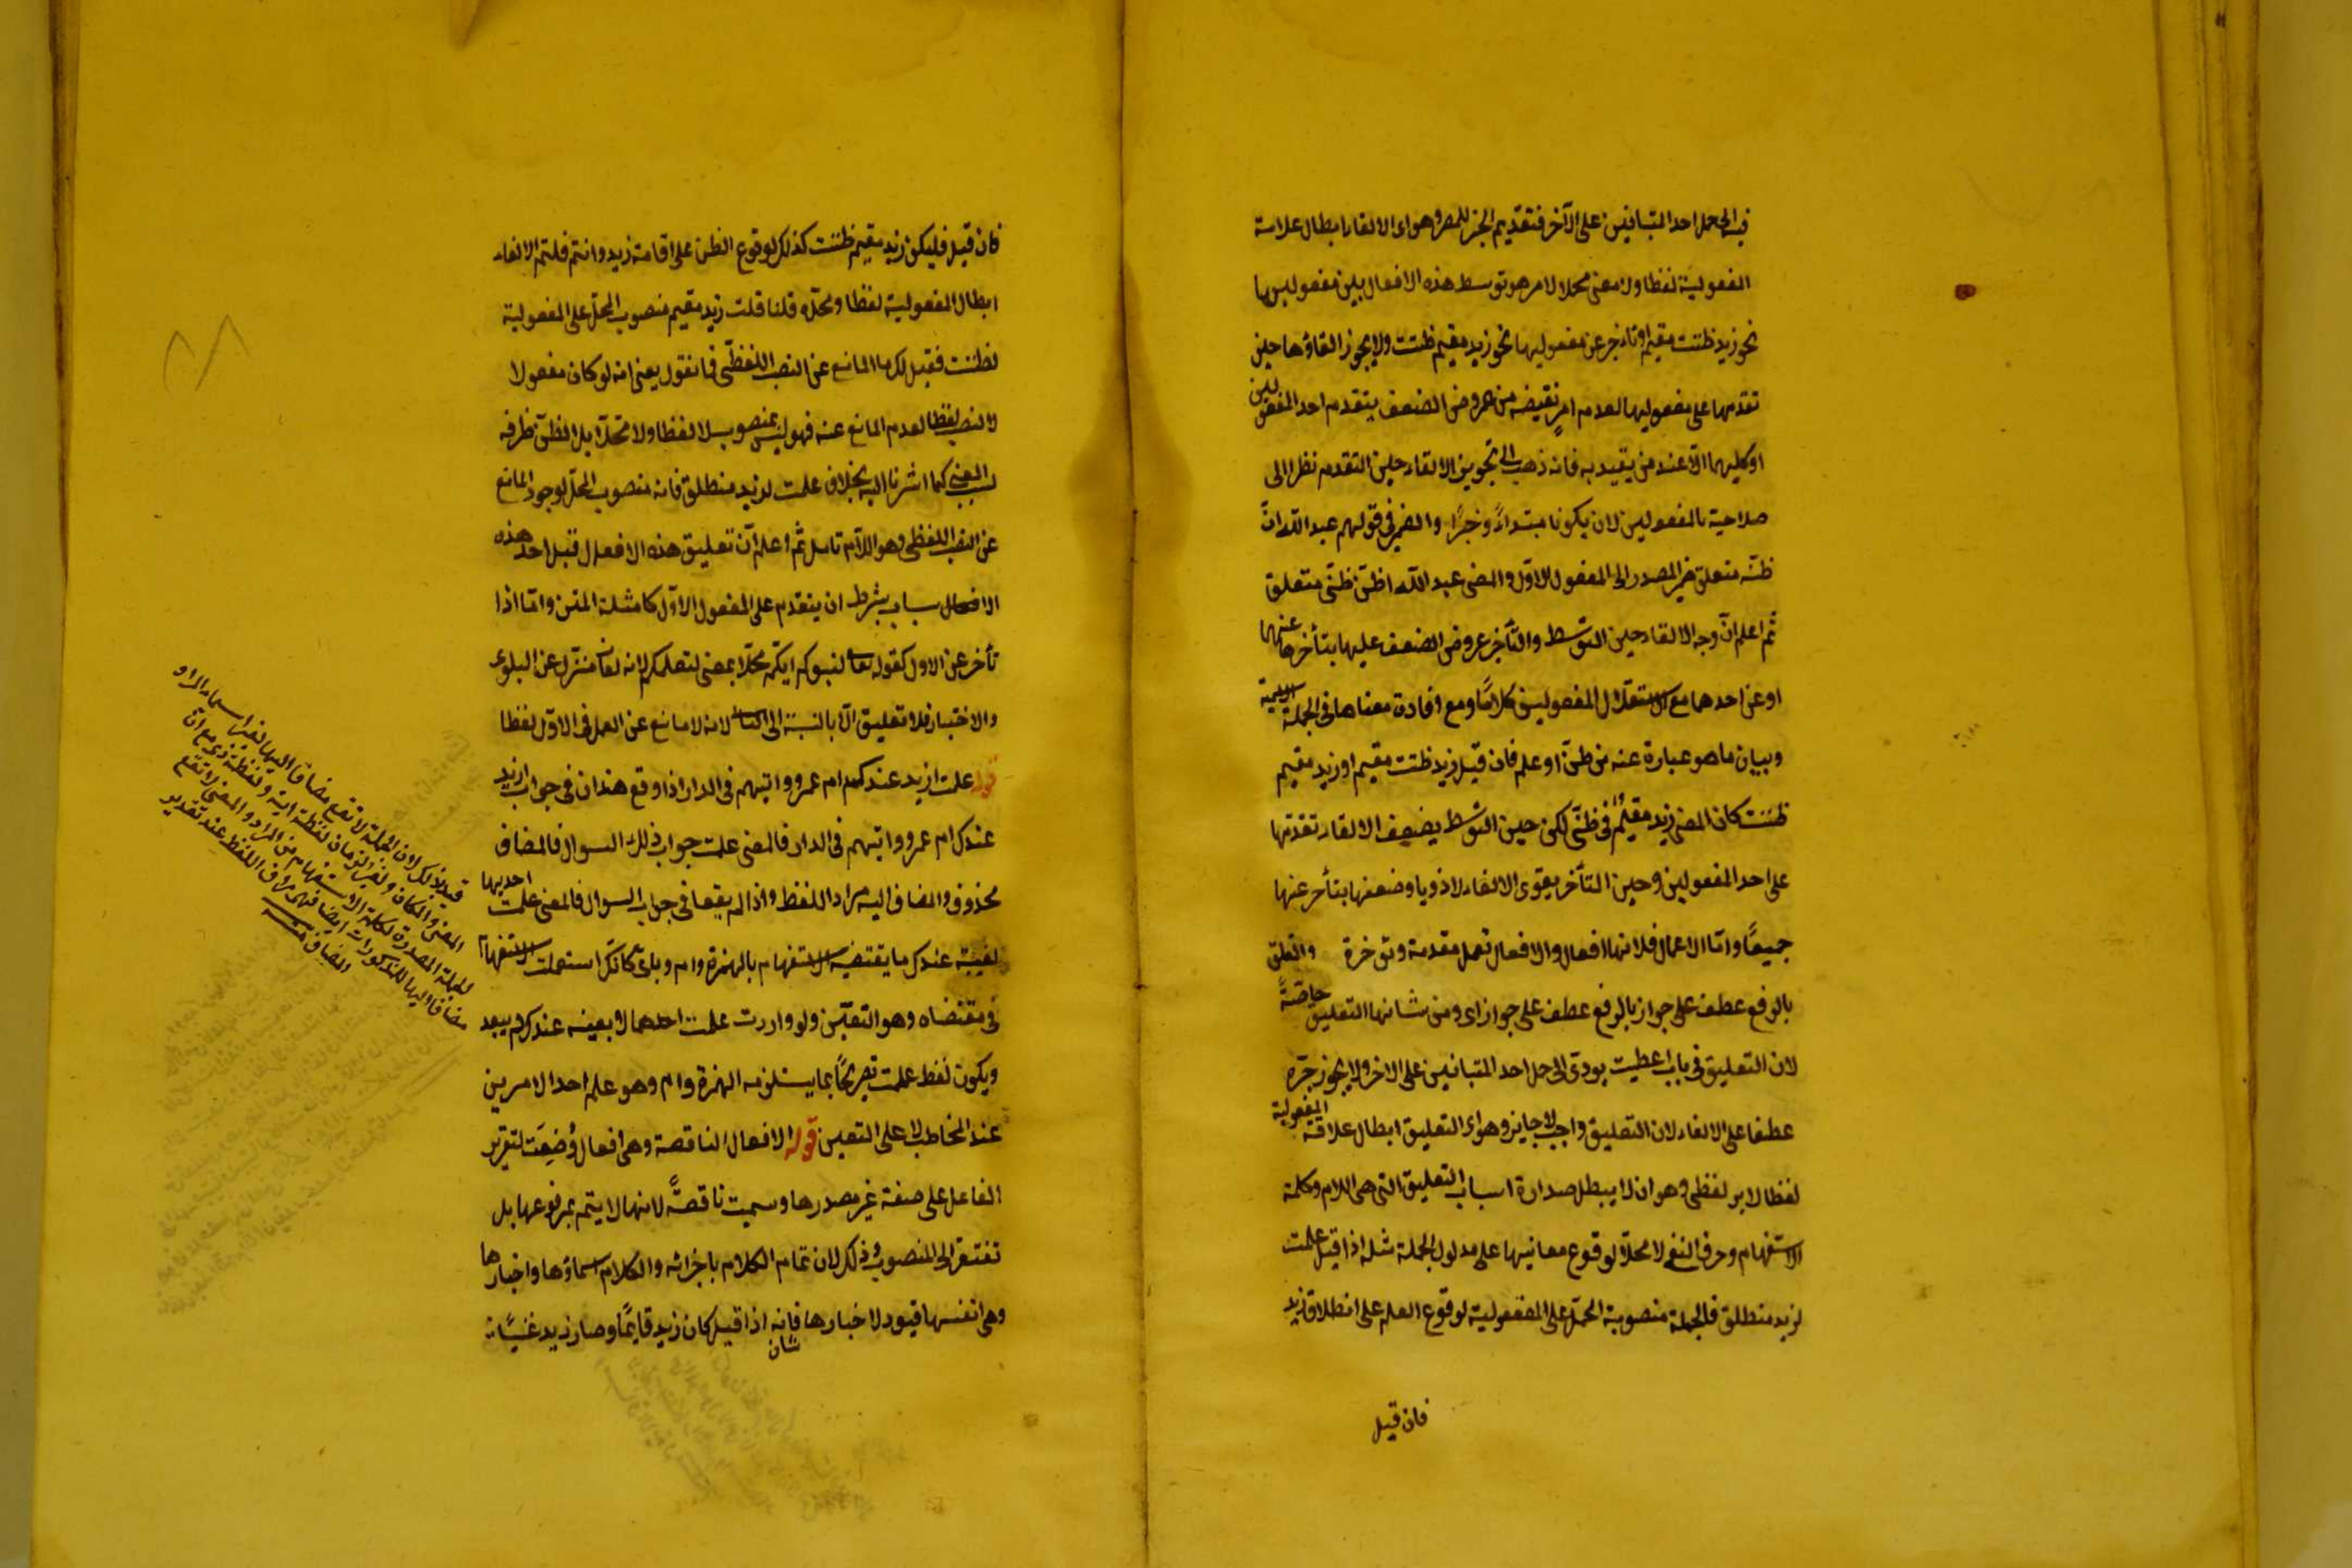 فيه الحمل احد المتباينين على الآخر فتقديم الجزء للمر وهو اى الالغاء ابطال علامة
المفعولية لفظا ولا معنى محلا لامر هو توسط هذه الافعال بين مفعوليها
نحو زيد ظننت مقيم او تاخر عن مفعوليها نحو زيد مقيم ظننت ولا يجوز الغاؤها حين
تقدمها على مفعوليها لعدم امر نقيضه من عروض الضعف بتقدم احد المفعولين
او كليهما الا عند من يقيد به فانه ذهب الى تجويز الالغاء حين التقدم نظرا الى
صلاحية المفعولين لان يكونا مبتداء وخبرًا والضمير فى قولهم عبد الله ان
ظنه متعلق ضمير المصدر الى المفعول الاوّل والمعنى عبد الله اظن ظنى متعلق
ثم اعلم انّ وجه الالغاء حين التوسّط والتّأخر عروض الضعف عليها بتأخرها عنهما
او عن احدهما مع استقلال المفعولين كلامًا ومع افادة معناها فى الجملة الاسمية
وبيان ما هو عبارة عنه من ظنّ او علم فان قيل زيد ظننت مقيم او زيد مقيم
ظننت كان المعنى زيد مقيم فى ظنّى لكن حين التوسّط يضعف الالغاء تقدمها
على احد المفعولين وحين التأخر يقوى الالغاء لاذويا وضعفها بتأخر عنها
جميعًا وامّا الاعمال فلانها افعال والافعال تعمل مقدمة ومؤخرة والتعلق
بالرفع عطف على جواز بالرفع عطف على جواز اى ومن شانها التعليق خاصّةً
لان التعليق فى باب اعطيت يودى الى حمل احد المتباينين على الاخر ولا يجوز جرّه
عطفا على الالغاء لان التعليق واجب لا جايز وهو اى التعليق ابطال علاقة المفعولية
لفظا لامر لفظى وهو ان لا يبطل صدارة اسباب التعليق التى هى اللام وكلمة
الاستفهام وحرف النفى لا محلّا لوقوع معانيها على مدلول الجملة مثله اذا قيل علمت
لزيد منطلق فالجملة منصوبة المحلّ على المفعولية لوقوع العلم على انطلاق زيد
فان قيل
فان قيل فليكن زيد مقيم ظننت كذلك لوقوع الظن على اقامة زيد وانتم قلتم الالغاء
ابطال المفعولية لفظا ومحلّا قلنا قلت زيد مقيم منصوب المحلّ على المفعولية
لظننت فقيل لك ما المانع عن النصب اللفظّى فما نقول يعنى انه لو كان مفعولا
لا لنصب لفظا لعدم المانع عنه فهو ليس بمنصوب لا لفظا ولا محلّا بل الظنّ ظرفه
لسبب المعنى كما اشرنا اليه بخلاف علمت لزيد منطلق فانه منصوب المحلّ لوجود المانع
عن النصب اللفظى وهو اللّام تامل ثم اعلم انّ تعليق هذه الافعال قبل احد هذه
الافعال سباب بشرط ان يتقدم على المفعول الاوّل كامثلة المتن وامّا اذا
تأخر عن الاول كقوله تعالى لنبلوكم ايكم محلّا بمعنى لنعلمكم لانه لفا منزل عن البلوى
والاختبار فلا تعليق الّا بالنسبة الى الثانى لانه لا مانع عن العمل فى الاوّل لفظا
قوله علمت ازيد عندكم ام عمرو وايهم فى الدار اذا وقع هذان فى جواب ازيد
عندك ام عمرو وايهم فى الدار فالمعنى علمت جواب ذلك السوال فالمضاف
محذوف والمضاف اليه مراد اللفظ واذا لم يقعا فى جواب السوال فالمعنى علمت احديهما
لفييته عندك ما يقتضيه الاستفهام بالهمزة وام وبلى كانك استعملت الاستفهام
فى مقتضاه وهو التعيّن ولو واردت علمت احدهما لا بعينه عندكم يبعد
ويكون لفظ علمت تصريحًا بما يستلزمه الهمزة وام وهو علم احد الامرين
عند المخاطب لا على التعيين قوله الافعال الناقصة وهى افعال وُضِعَت لتقرير
الفاعل على صفة غير مصدرها وسميت ناقصةً لانها لا يتم بمرفوعها بل
تفتقر الى المنصوب وذلك لان تمام الكلام باجزائه والكلام اسماؤها واخبارها
وهى انفسها قيود لاخبارها فانه اذا قيل كان زيد قايمًا وصار زيد غنيًا
شان
قيد بذلك لان الجملة لا تقع مضافا اليها لغير اسماء المراد
المعنى والمكان ولغير الزمان لفظة اية ولفظية ذى مع انّ
للجملة المصدرة لكلمة الاستفهام من المراد والمعنى لا تقع
مضافا اليها للمذكورات ايضا فهى مراق اللفظ عند تقدير
المضاف منه